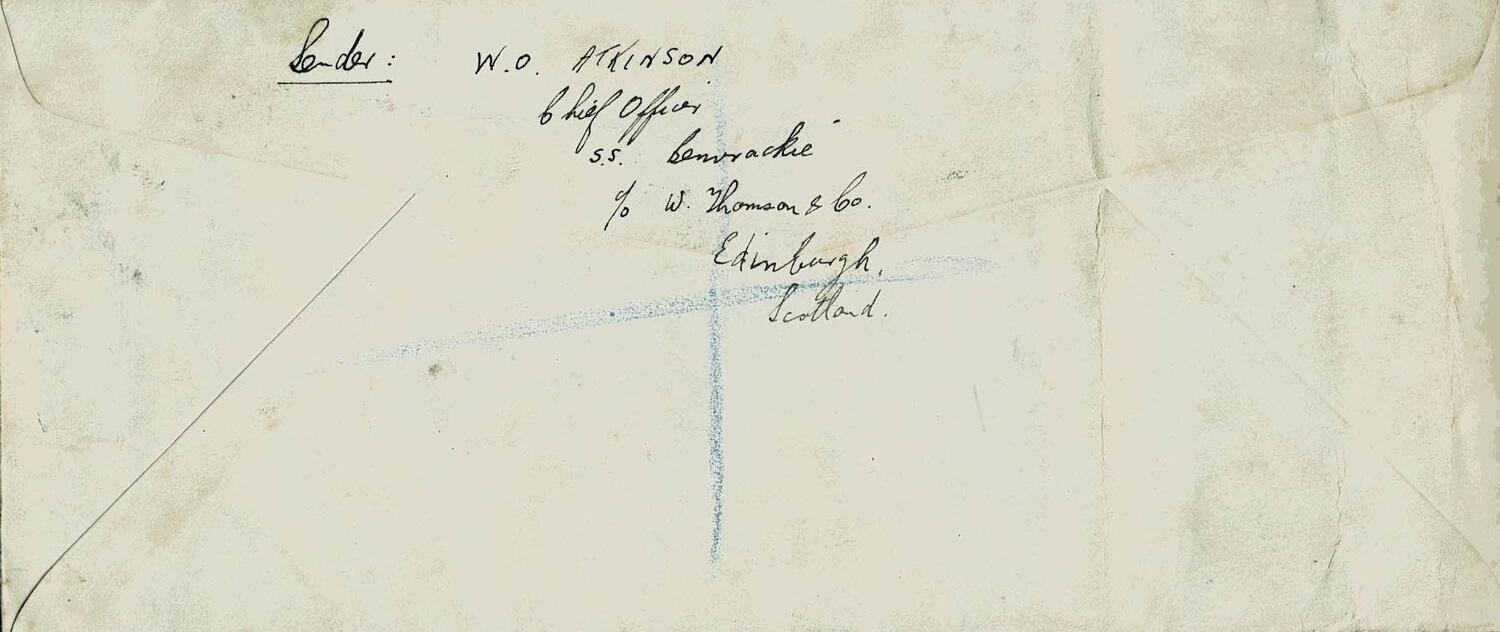 Sender: W.O. ATKINSON
Chief Officer
s.s. Benvrackie"
c/o W. Thomson & Co.
Edinburgh,
Scotland.